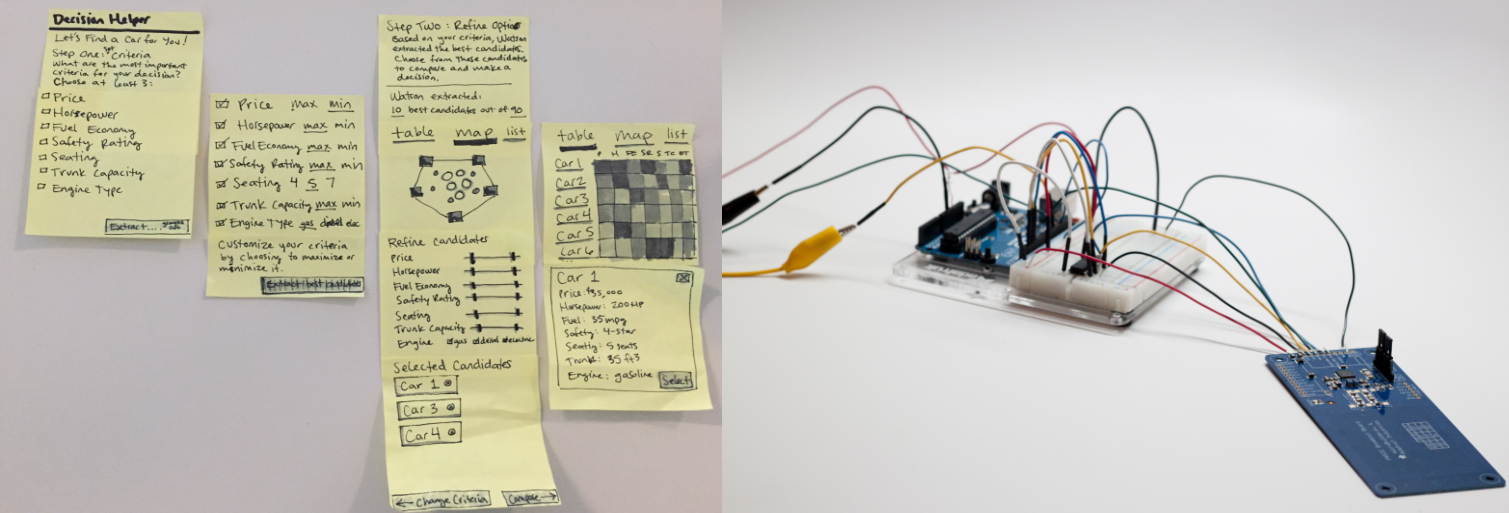 Decision Helper
Let's Find a Car for You!
Step One: Set Criteria
What are the most important
criteria for your decision?
Choose at least 3:
Price
Horsepower
Fuel Economy
Safety Rating
Seating
Trunk Capacity
Engine Type
Extract...
Price max min
Horsepower max min
Fuel Economy max min
Safety Rating max min
Seating 4 5 7
Trunk Capacity max min
Engine Type gas diesel elec
Customize your criteria
by choosing to maximize or
minimize it.
Extract best candidates
Step Two: Refine Options
Based on your criteria, Watson
extracted the best candidates.
Choose from these candidates
to compare and make a
decision.
Watson extracted:
10 best candidates out of 90
table map list
Refine Candidates
Price
Horsepower
Fuel Economy
Safety Rating
Seating
Trunk Capacity
Engine gas diesel electric
Selected Candidates
Car 1
Car 3
Car 4
← Change Criteria
Compare →
table map list
P H FE SR S TC ET
Car 1
Car 2
Car 3
Car 4
Car 5
Car 6
Car 1
Price: $35,000
Horsepower: 200 HP
Fuel: 35 mpg
Safety: 4-star
Seating: 5 seats
Trunk: 35 ft3
Engine: gasoline
Select